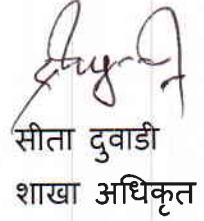 सीता दुवाडी
शाखा अधिकृत